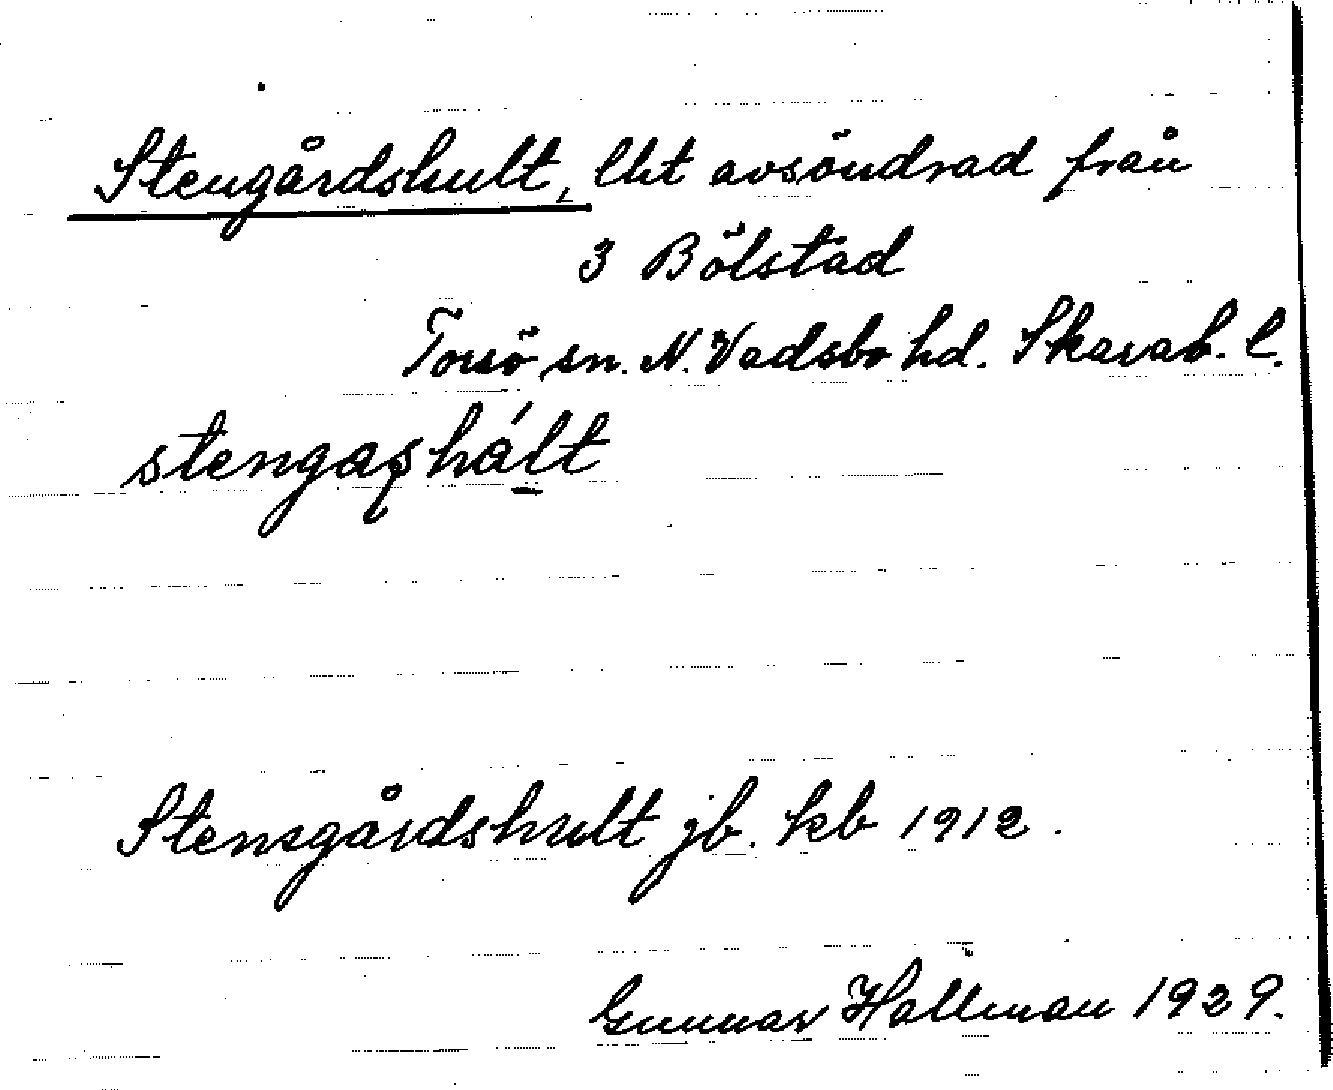 Stengårdshult, lht avsöndrad från
3 Bölstad
Torsö sn. N. Vadsbo hd. Skarab. l.
stengaʂhált
Stensgårdshult jb. kb 1912.
Gunnar Hallman 1929.